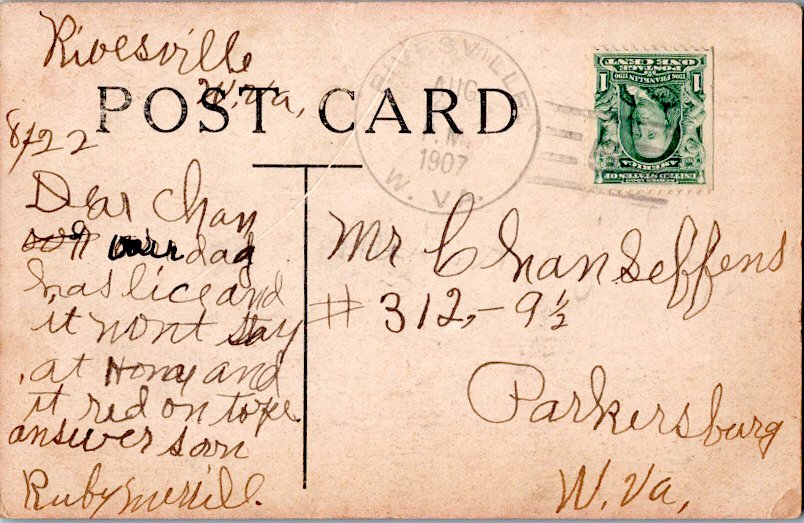 Rivesville
W. Va,
POST CARD
8/22
RIVESVILLE,
AUG
.M.
1907
W. VA.
1 POSTAGE 1
ONE CENT
1706 FRANKLIN 1790
UNITED STATES OF
AMERICA
Dear Chan
our dag
has lice and
it wont stay
at Home and
it red on tope
answer soon
Ruby Merrill.
Mr Chan Seffens
# 312,-9½
Parkersburg
W. Va,